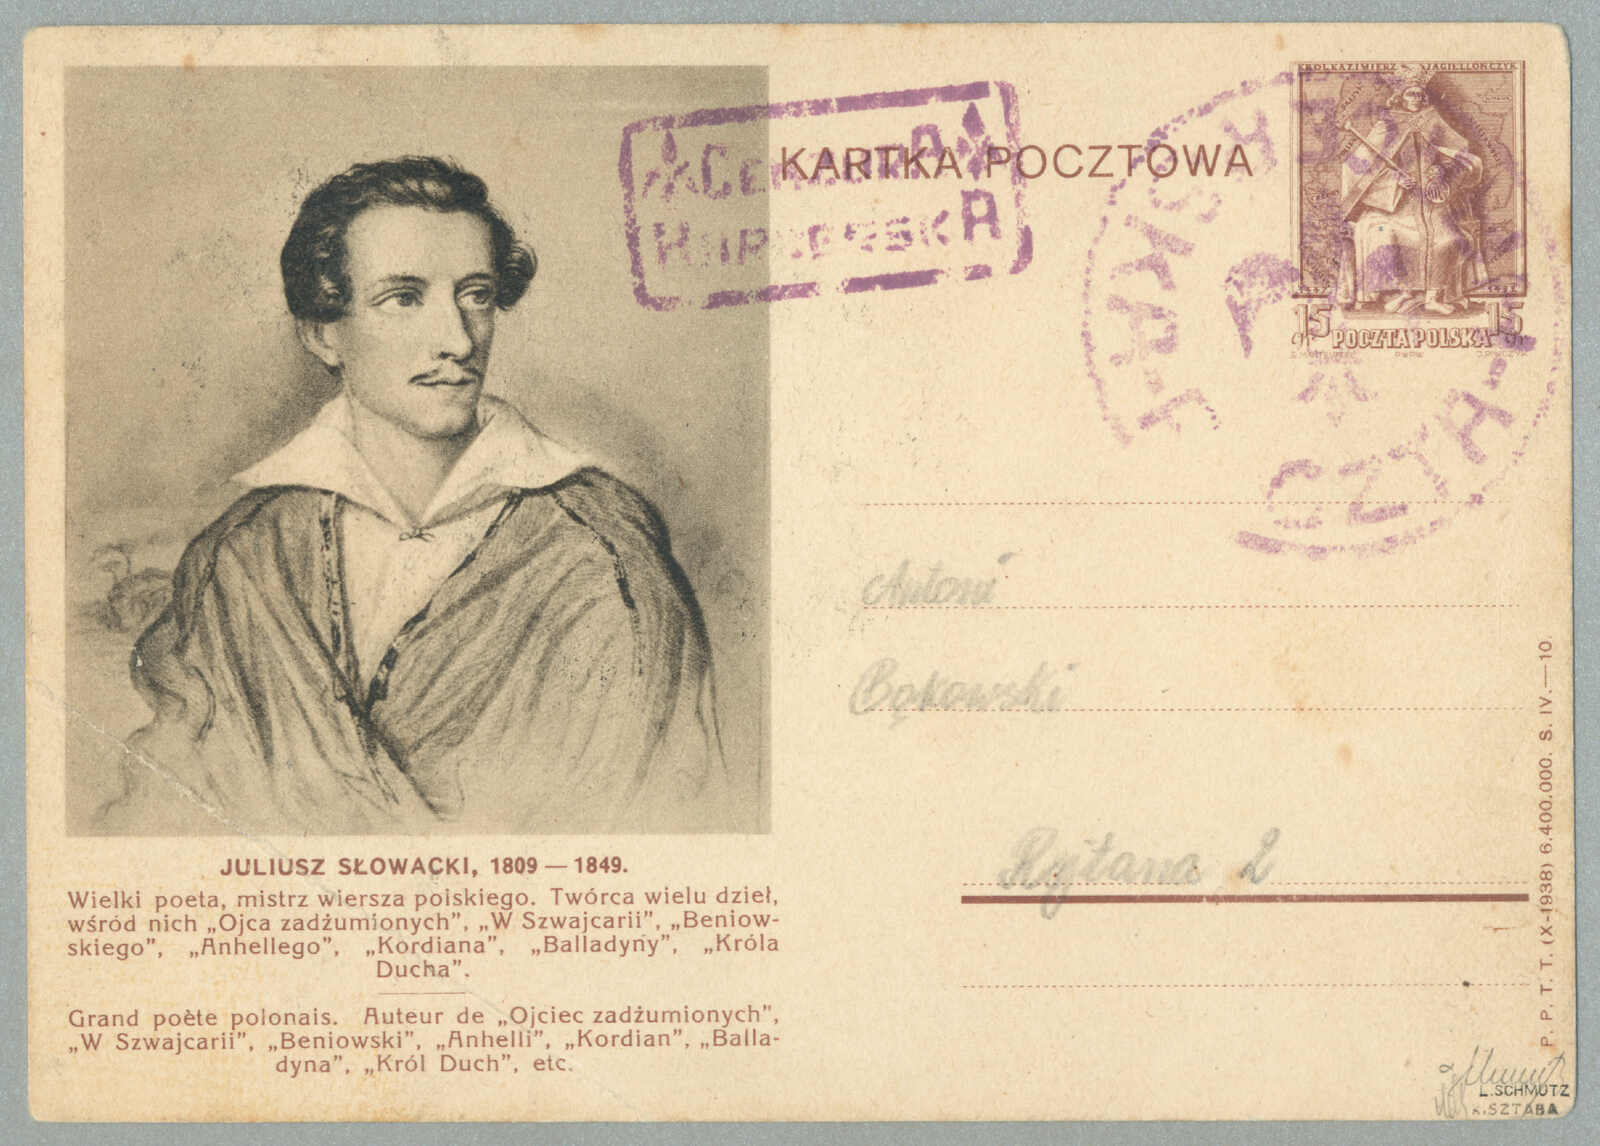 KARTKA POCZTOWA
KRÓL KAZIMIERZ JAGIELLOŃCZYK
15 POCZTA POLSKA 15
gr gr
CENZURA
HARCERSKA
HARCERSKA
Antoni
Bąkowski
Rejtana 2
JULIUSZ SŁOWACKI, 1809 — 1849.
Wielki poeta, mistrz wiersza polskiego. Twórca wielu dzieł,
wśród nich „Ojca zadżumionych”, „W Szwajcarii”, „Beniow-
skiego”, „Anhellego”, „Kordiana”, „Balladyny”, „Króla
Ducha”.
Grand poète polonais. Auteur de „Ojciec zadżumionych”,
„W Szwajcarii”, „Beniowski”, „Anhelli”, „Kordian”, „Balla-
dyna”, „Król Duch”, etc.
P. P. T. T. (X-1938) 6.400.000. S. IV.—10.
L. SCHMUTZ
K. SZTABA